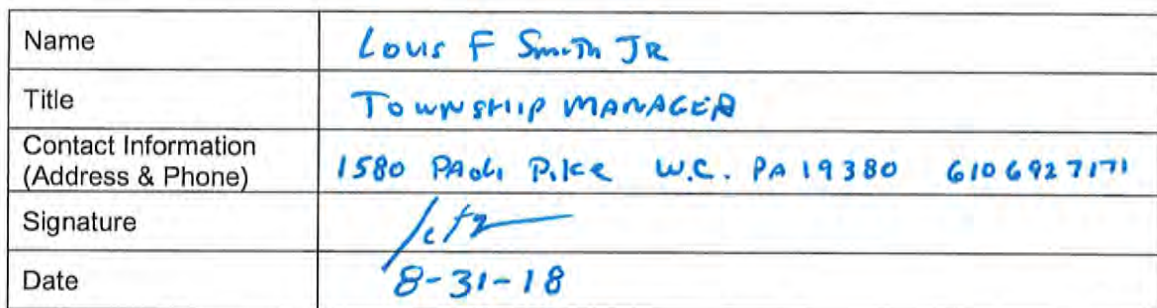 Name Louis F Smith JR
Title TOWNSHIP MANAGER
Contact Information
(Address & Phone) 1580 PAOLI PIKE W.C. PA 19380 6106927171
Signature
Date 8-31-18